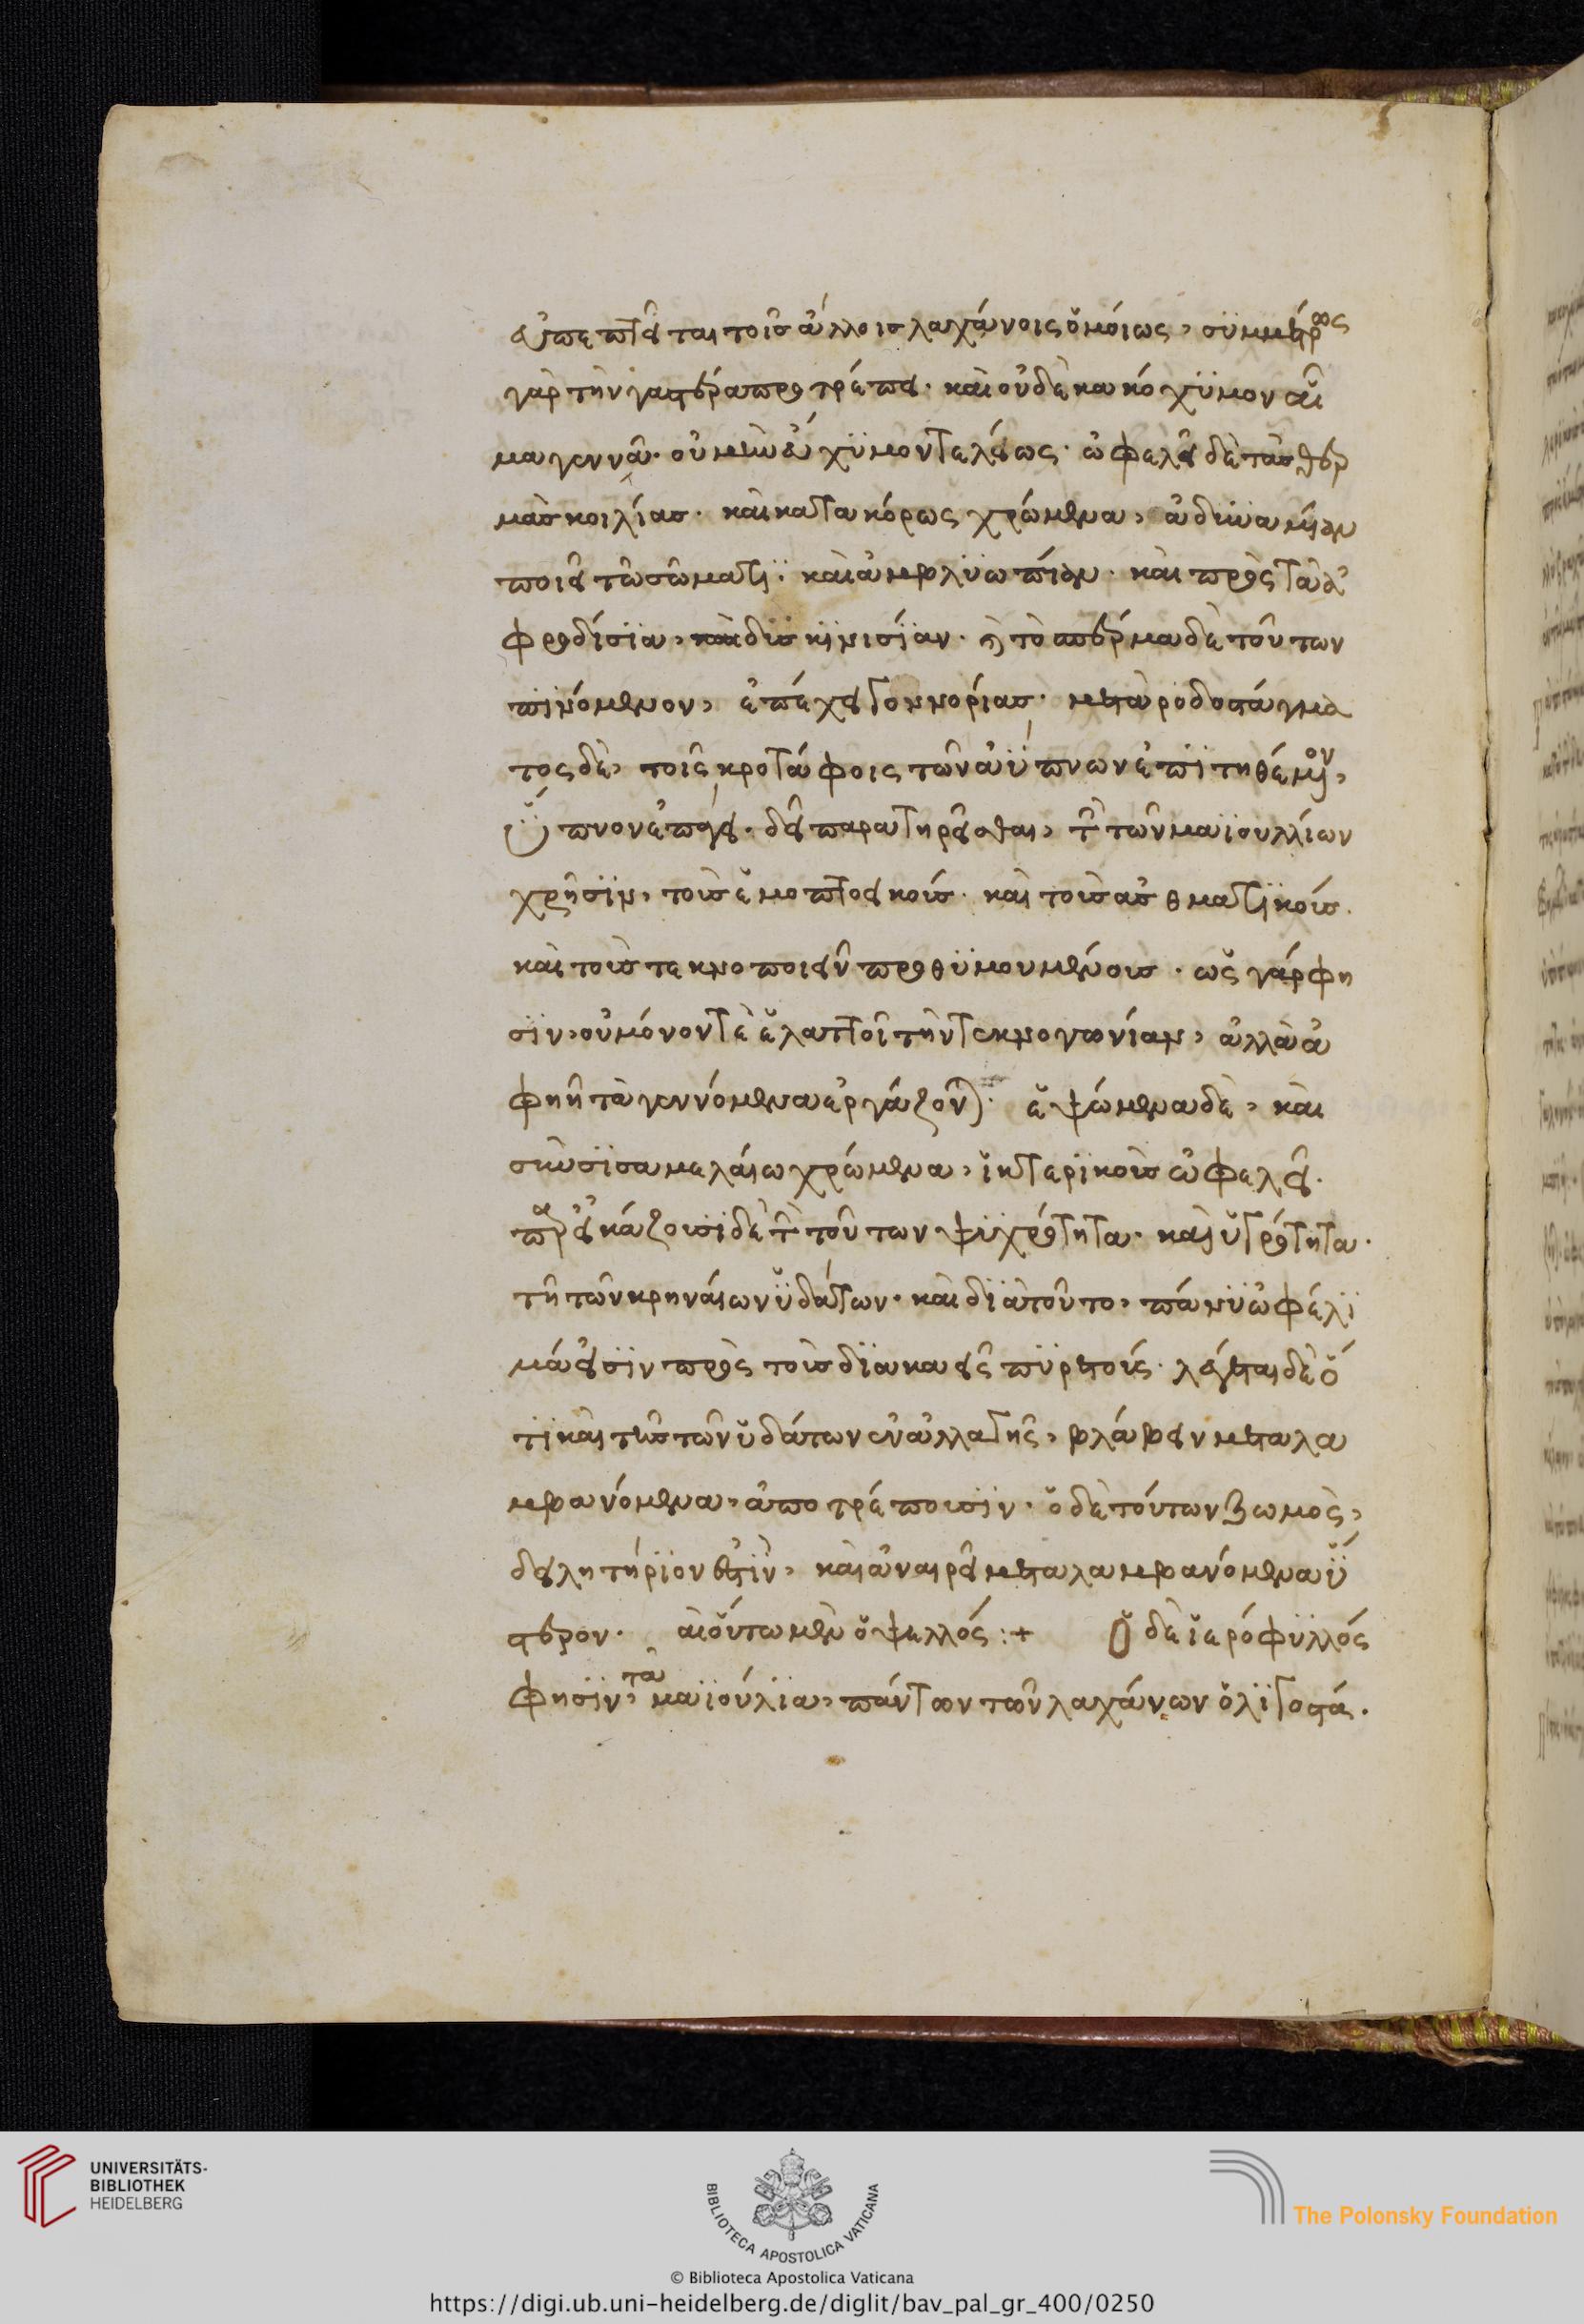 εὐπεπτεῖται τοῖσ ἄλλοισ λαχάνοις ὁμοίως, συμμέτρως
γὰρ τὴν γαστέρα προτρέπει. καὶ οὐδὲ κακόχϋμον αἷ
μα γεννᾶ. οὐ μὴν εὔχϋμον τελείως. ὠφελεῖ δὲ τὰσ θερ
μὰσ κοιλίασ. καὶ κατακόρως χρώμενα, ἀδυναμίαν
ποιεῖ τῶ σώματϊ. καὶ ἀμβλϋωπίαν. καὶ πρὸς τὰ ἀ
φροδίσϊα, δϋσκϊνισίαν. τὸ σπέρμα δὲ τούτων
πϊνόμενον, ἐπέχει γοννορίασ. μετὰ ῥοδοστάγμα
τος δὲ, τοῖς κροτάφοις τῶν ἀΰπνων ἐπϊτηθέμενον,
ὕπνον ἐπάγει. δεῖ παρατηρεῖσθαι, τὴν τῶν μαϊουλλίων
χρῆσϊν, τοῖσ ἑμοπτοεικοῖσ. καὶ τοῖσ ἀσθματϊκοῖσ.
καὶ τοῖσ τεκνοποιεῖν προθϋμουμένοισ. ὡς γάρ φη
σϊν, οὐ μόνον τὲ ἐλαττοῖ τὴν τεκνογωνίαν, ἀλλὰ ἀ
φηῆ τὰ γεννόμενα ἐργάζονται. ἑψώμενα δὲ, καὶ
σὺν σϊσαμελαίω χρώμενα, ἰκτερϊκοῖσ ὠφελεῖ.
παρεικάζουσϊ δὲ τὴν τούτων ψϋχρότητα. καὶ ὑγρότητα.
τῆ τῶν κρηναίων ὑδάτων. καὶ δϊὰ τοῦτο, πάνϋ ὠφέλϊ
μά εἰσϊν πρὸς τοῖσ δϊακαεῖς πϋρετοῖς. λέγεται δὲ ὅ
τϊ καὶ τῆσ τῶν ὑδάτων ἐναλλαγῆς, βλάβειν μεταλα
μβανόμενα, ἀποτρέπουσϊν. ὁ δὲ τούτων ζωμὸς,
δειλητήρϊον ἐστὶν, καὶ ἀναιρεῖ μεταλαμβανόμενα ὕ
στερον. οὕτω μὲν ὁ ψελλός :+ Ὁ δὲ ἱερόφϋλλός
φησϊν, τὰ μαϊούλϊα, πάντων τῶν λαχάνων ὀλϊγοστά.
UNIVERSITÄTS-
BIBLIOTHEK
HEIDELBERG
BIBLIOTECA APOSTOLICA VATICANA
The Polonsky Foundation
© Biblioteca Apostolica Vaticana
https://digi.ub.uni-heidelberg.de/diglit/bav_pal_gr_400/0250